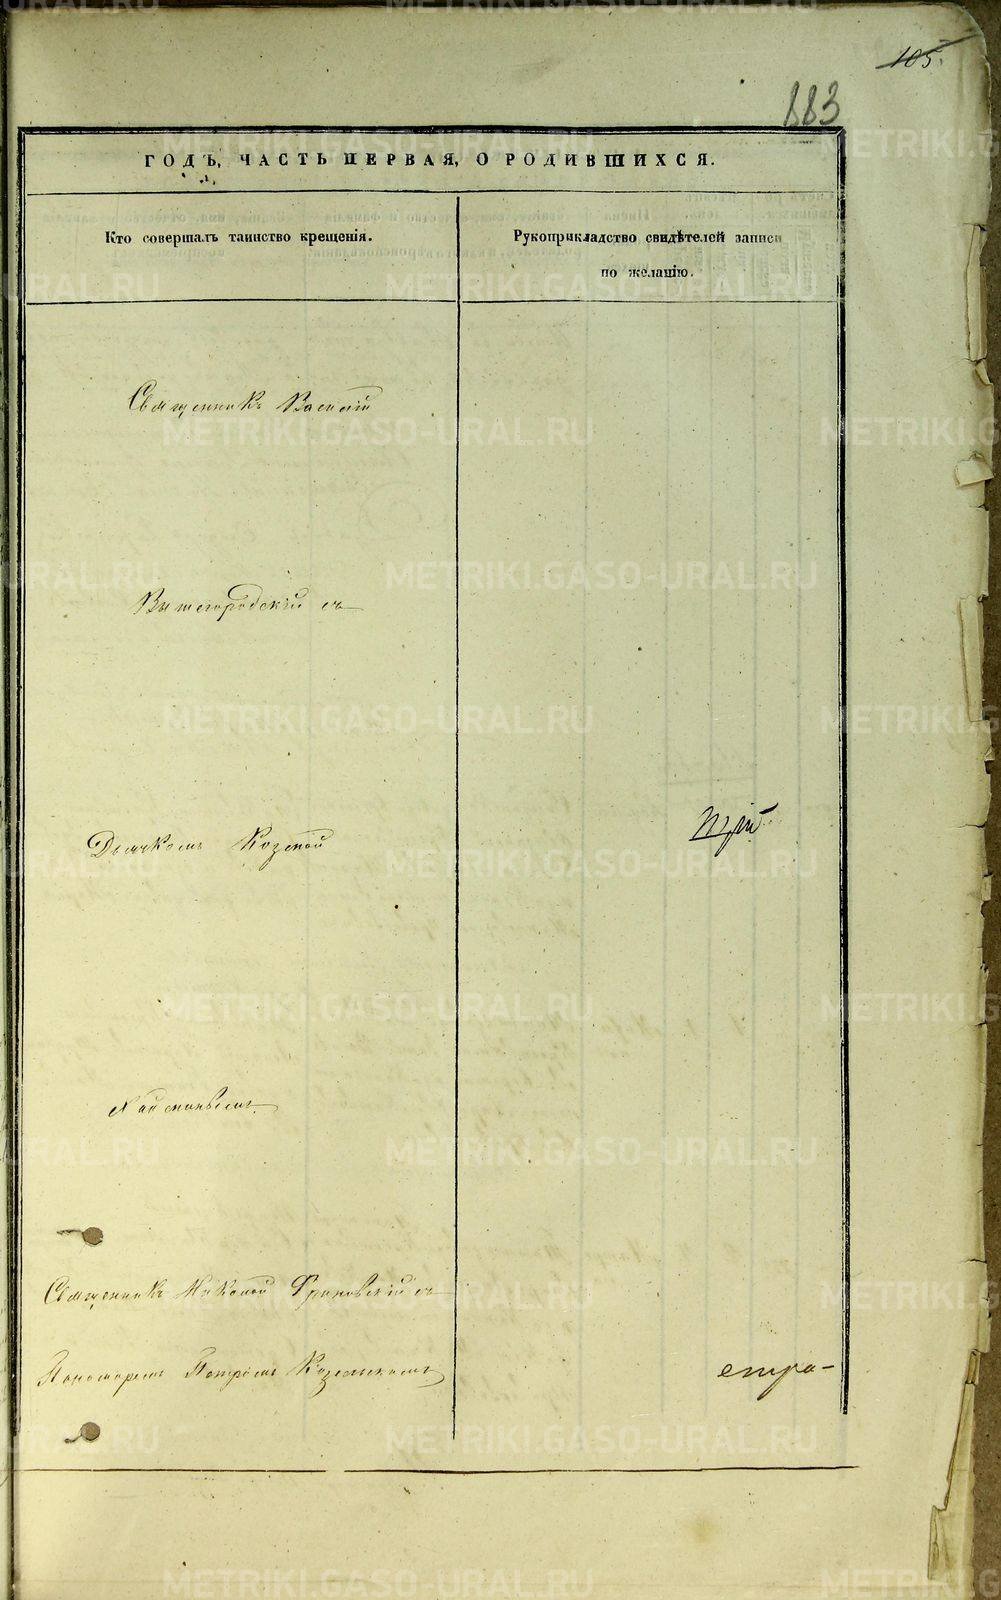 105.
883
ГОДЪ, ЧАСТЬ ПЕРВАЯ, О РОДИВШИХСЯ.
Кто совершалъ таинство крещенія.
Рукоприкладство свидѣтелей записи
по желанію.
Священникъ Василій
Вышегородскій съ
Дьячкомъ Козмой
Священникъ Николай съ
Пономаремъ Петромъ
стра-
METRIKI.GASO-URAL.RU